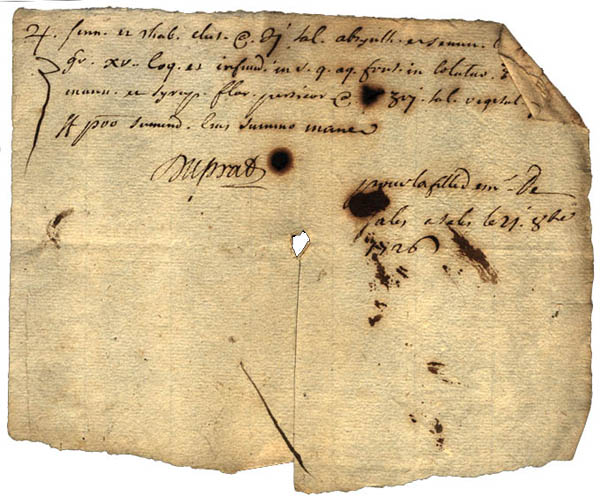 ♃. senn. et rhab. elect. @ ʒj. sal. absynth. et senn.
gr. xv. Coq. et infund. in s. q. aq. font. in colatur.
mann. et syrup. flor. persicor @ ʒvj. sal. vegetal.
pᵒᵒ sumend. Cras summo mane
Duprat
pour la fille de mʳ De
sales a sales le 21. 8bʳᵉ
1726